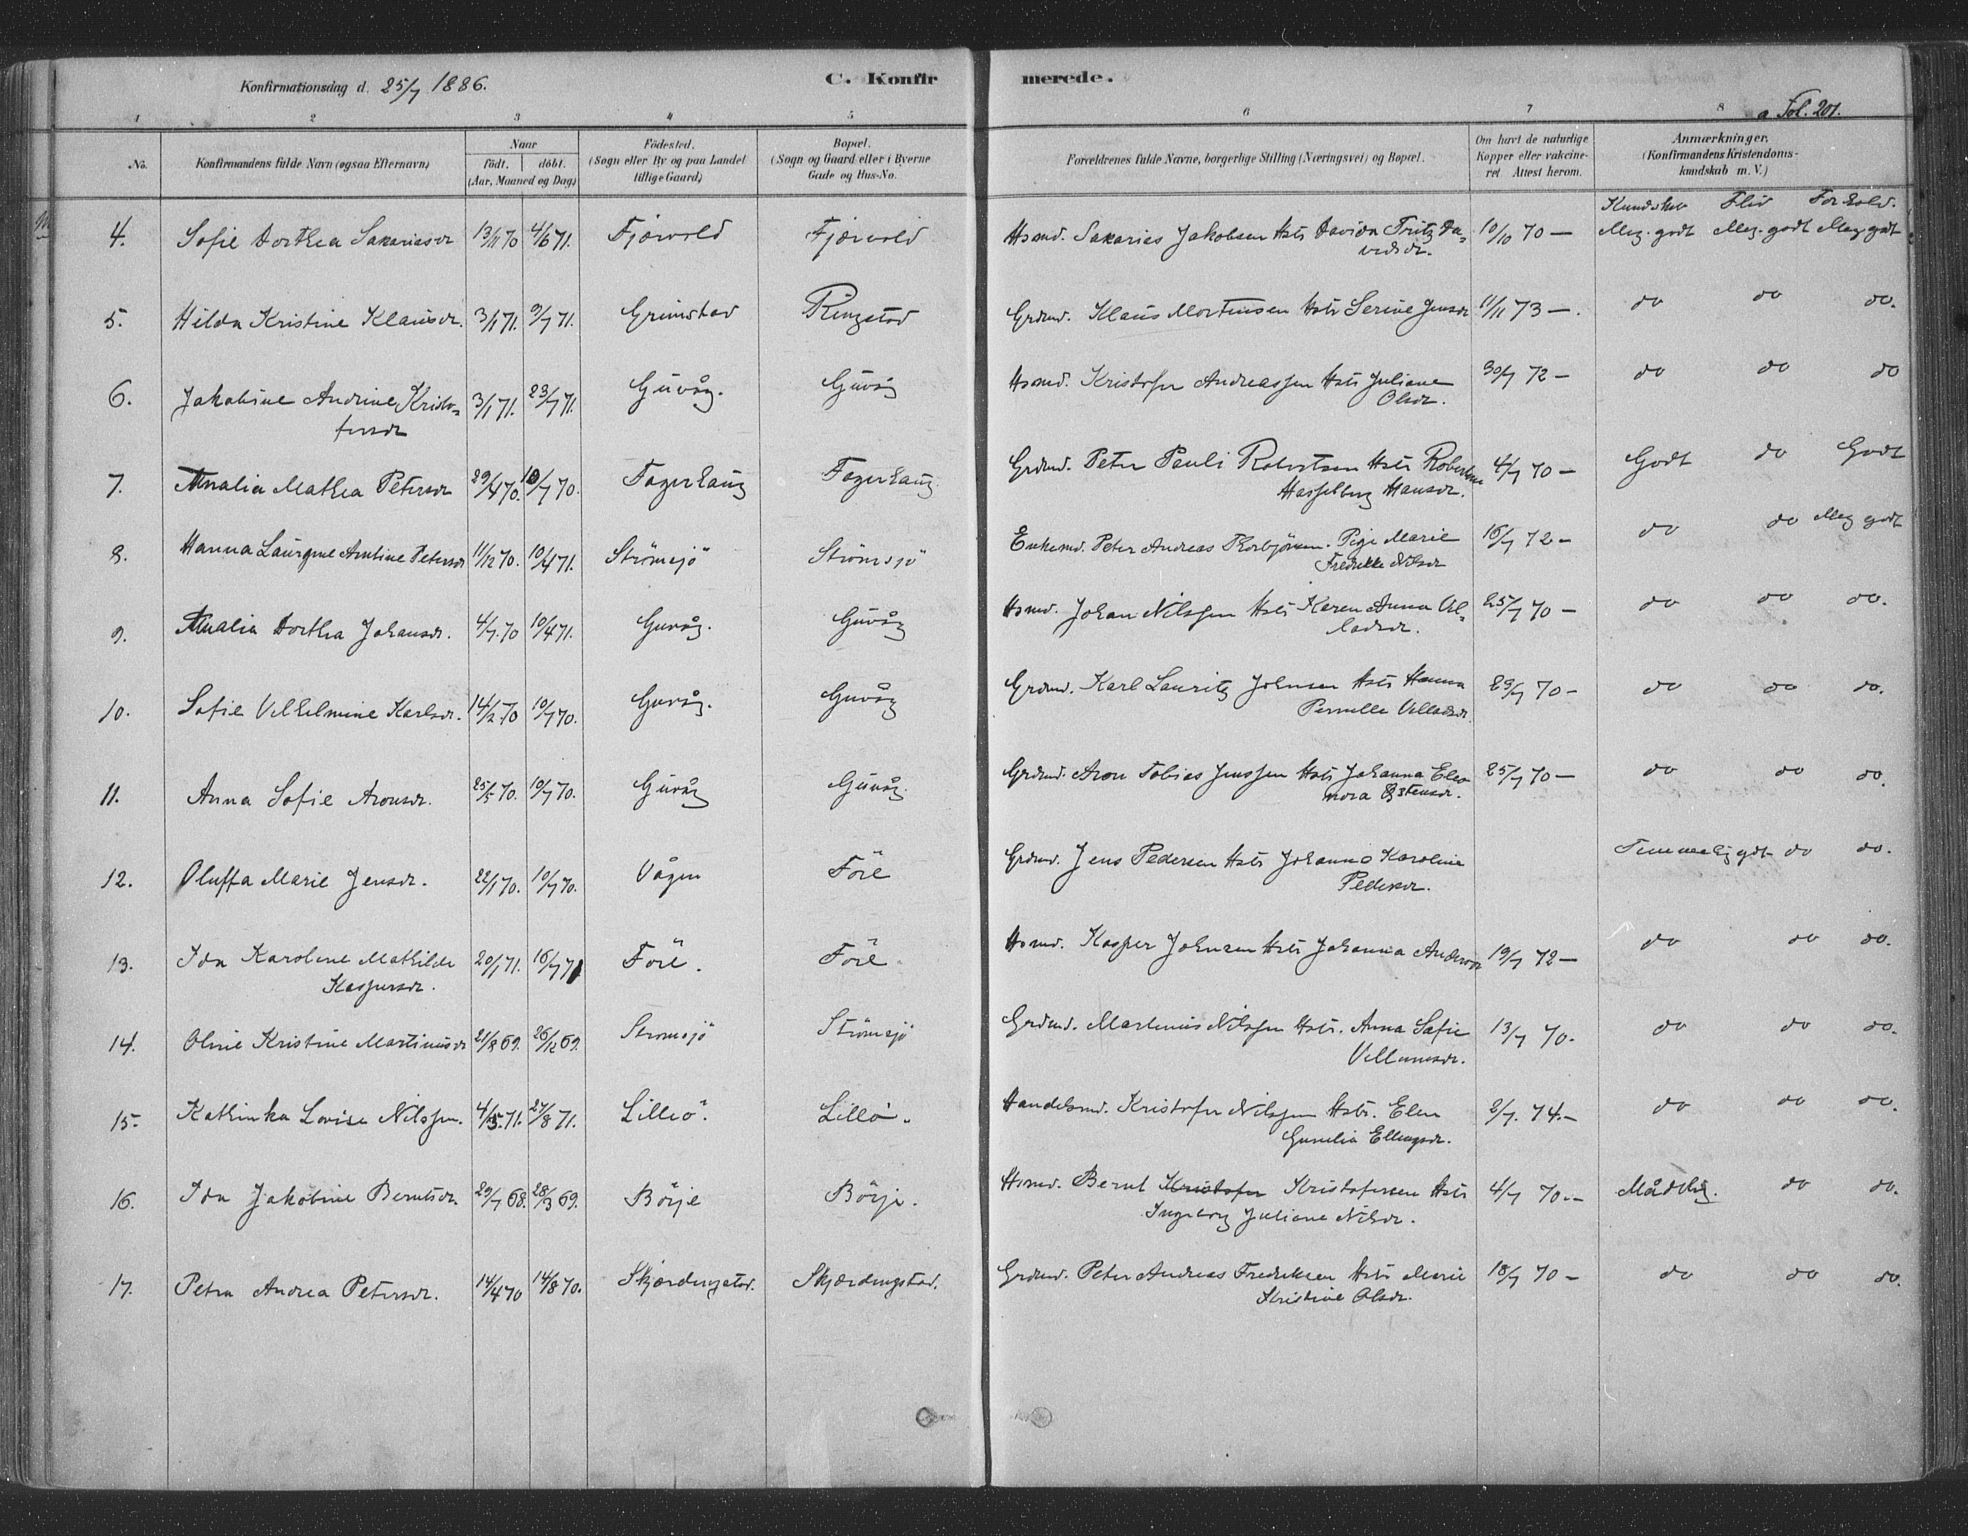 Konfirmationsdag d. 25/7 1886.
C. Konfirmerede.
a Fol. 201.
1 2 3 4 5 6 7 8
No.
Konfirmandens fulde Navn (ogsaa Efternavn)
Naar
födt. döbt.
(Aar, Maaned og Dag)
Födested.
(Sogn eller By og paa Landet
tillige Gaard)
Bopæl.
(Sogn og Gaard eller i Byerne
Gade og Hus-No.
Forældrenes fulde Navne, borgerlige Stilling (Næringsvei) og Bopæl.
Om havt de naturlige
Kopper eller vakcine-
ret Attest herom.
Anmærkninger.
(Konfirmandens Kristendoms-
kundskab m. V.)
Kundskab Flid Forhold.
4. Sofie Dorthea Sakariasdr 13/11 70 4/6 71. Fjærvold Fjærvold Hsmd. Sakarias Jakobsen Hstr Davida Fritz Da-
vidsdr. 10/10 70 — Meg. godt Meg. godt Meg godt
5. Hilda Kristine Klausdr. 3/1 71. 9/7 71. Grimstad Ringstad Grdmd. Klaus Mortensen Hstr Serine Jensdr 11/11 73 —. do do do.
6. Jakobine Andrine Kristo-
fersdr 3/1 71. 23/7 71. Guvåg. Guvåg Hsmd. Kristofer Andreassen Hstr Juliane
Olsdr. 30/7 72 — do do do
7. Amalia Mathea Petersdr 29/4 70. 10/7 70. Fagerhaug Fagerhaug. Grdmd. Peter Pauli Robertsen Hstr Robertine
Hasselberg Hansdr. 4/7 70 — Godt do Godt
8. Hanna Laurgine Antine Petersdr 11/12 70. 10/4 71. Strömsjö Strömsjö Enkemd. Peter Andreas Thorbjörnsen. Pige Marie
Fredrikke Nilsdr 16/7 72 — do do Meg godt
9. Amalia Dorthea Johansdr. 4/7 70 10/4 71. Guvåg. Guvåg Hsmd. Johan Nilssen Hstr Karen Anna Vil-
ladsdr. 25/7 70 — do do do.
10. Sofie Vilhelmine Karlsdr. 14/2 70 10/7 70. Guvåg. Guvåg Grdmd. Karl Lauritz Johnsen Hstr Hanna
Pernille Villadsdr. 29/7 70 — do do do.
11. Anna Sofie Aronsdr. 25/5 70. 10/7 70. Guvåg Guvåg. Grdmd. Aron Tobias Jenssen Hstr Johanna Eleo-
nora Estensdr. 25/7 70 — do do do.
12. Oluffa Marie Jensdr. 22/1 70. 10/7 70. Vågen Före Grdmd. Jens Pedersen Hstr Johanna Karoline
Pedersdr. Temmelig godt do do.
13. Ida Karoline Mathilde
Kaspersdr. 20/1 71. 16/7 71 Före. Före. Hsmd. Kasper Johnsen Hstr Johanna Andersdr 19/7 72 — do do do.
14. Oline Kristine Martinusdr 21/8 69. 26/12 69. Strömsjö Strömsjö Grdmd. Martinus Nilssen Hstr. Anna Sofie
Villumsdr. 13/7 70. do do do.
15. Kathinka Lovise Nilssen. 4/5 71. 27/8 71. Lilleö. Lillö. Handelsmd. Kristofer Nilssen Hstr. Elen
Gunelia Ellingsdr. 2/7. 74. — do do do.
16. Ida Jakobine Berntsdr. 29/7 68. 28/3 69. Börje Börje. Hsmd. Bernt Kristofer Kristofersen Hstr
Ingeborg Juliane Nilsdr. 4/7 70. — Mådelig. do do.
17. Petra Andrea Petersdr. 14/4 70 14/8 70. Skjærdingstad. Skjærdingstad. Grdmd. Peter Andreas Fredriksen Hstr Marie
Kristine Olsdr. 18/7 70 — do do do.